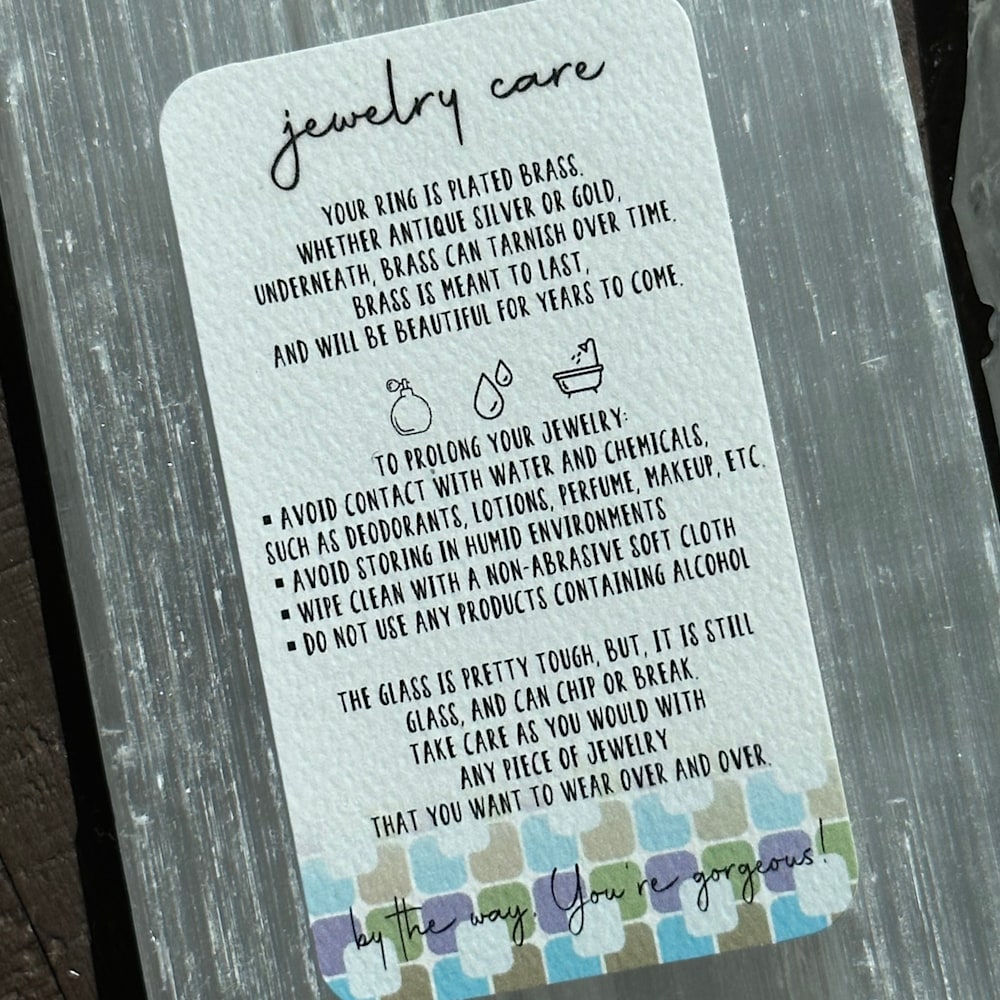 jewelry care
YOUR RING IS PLATED BRASS.
WHETHER ANTIQUE SILVER OR GOLD,
UNDERNEATH, BRASS CAN TARNISH OVER TIME.
BRASS IS MEANT TO LAST,
AND WILL BE BEAUTIFUL FOR YEARS TO COME.
TO PROLONG YOUR JEWELRY:
▪ AVOID CONTACT WITH WATER AND CHEMICALS,
SUCH AS DEODORANTS, LOTIONS, PERFUME, MAKEUP, ETC.
▪ AVOID STORING IN HUMID ENVIRONMENTS
▪ WIPE CLEAN WITH A NON-ABRASIVE SOFT CLOTH
▪ DO NOT USE ANY PRODUCTS CONTAINING ALCOHOL
THE GLASS IS PRETTY TOUGH, BUT, IT IS STILL
GLASS, AND CAN CHIP OR BREAK.
TAKE CARE AS YOU WOULD WITH
ANY PIECE OF JEWELRY
THAT YOU WANT TO WEAR OVER AND OVER.
by the way. You're gorgeous!